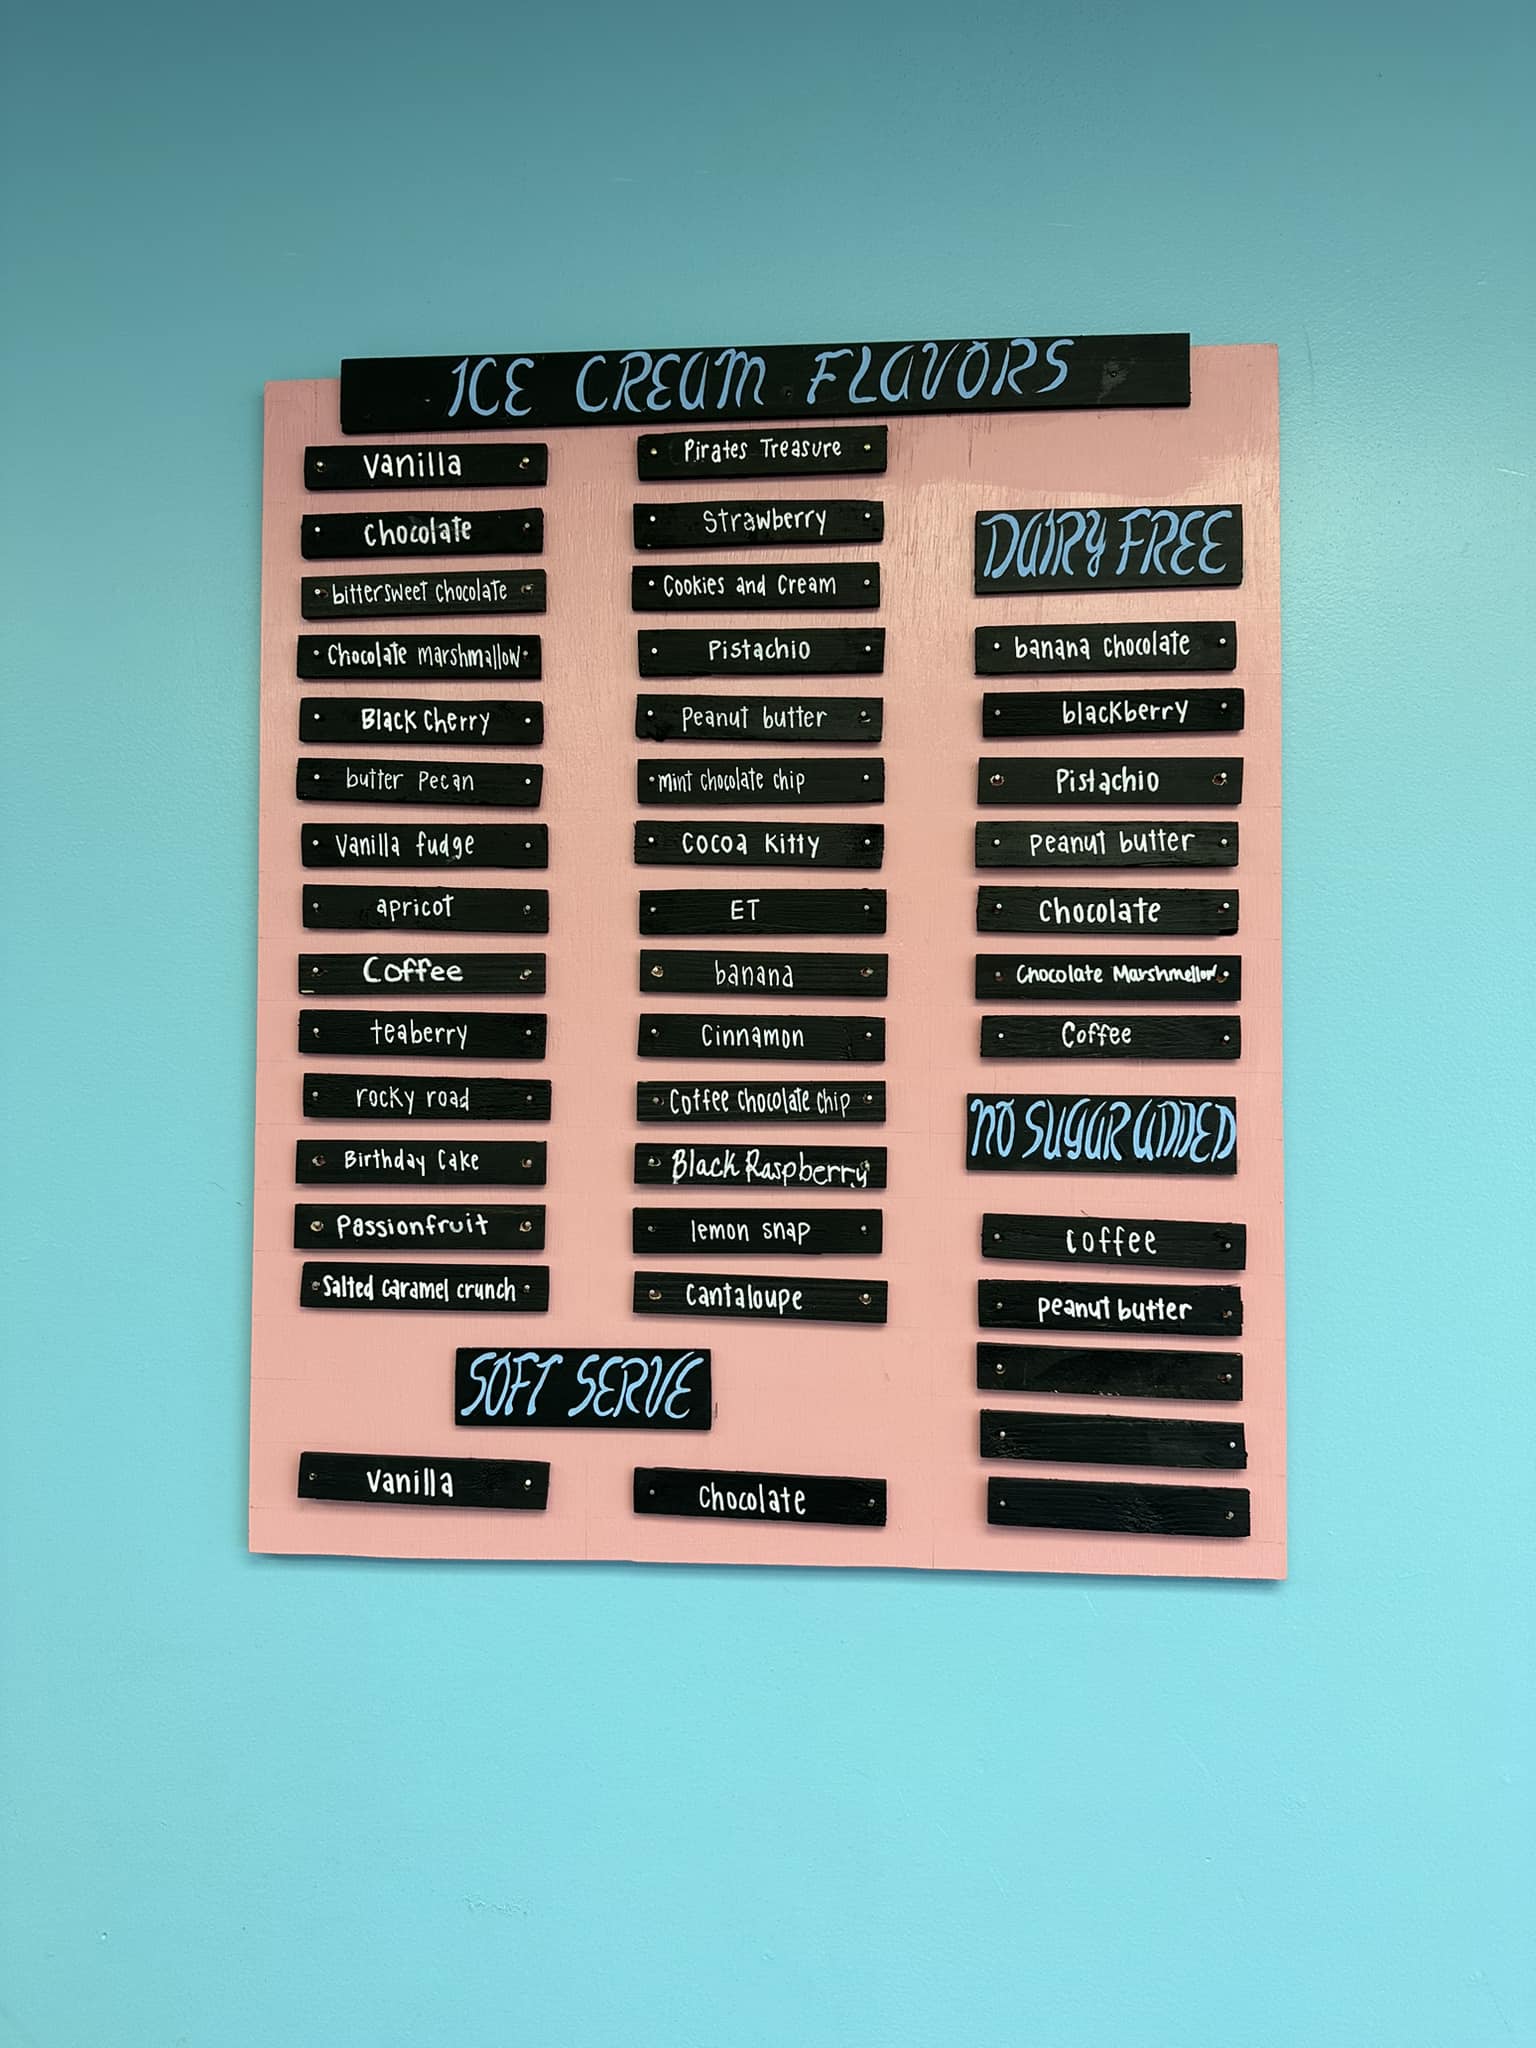 ICE CREAM FLAVORS
Vanilla
Chocolate
bittersweet chocolate
Chocolate marshmallow
Black Cherry
butter Pecan
Vanilla fudge
apricot
Coffee
teaberry
rocky road
Birthday Cake
Passionfruit
Salted Caramel crunch
Pirates Treasure
Strawberry
Cookies and Cream
Pistachio
Peanut butter
mint chocolate chip
Cocoa Kitty
ET
banana
Cinnamon
Coffee chocolate chip
Black Raspberry
lemon snap
Cantaloupe
SOFT SERVE
Vanilla
Chocolate
DAIRY FREE
banana chocolate
blackberry
Pistachio
Peanut butter
Chocolate
Chocolate Marshmellow
Coffee
NO SUGAR ADDED
Coffee
Peanut butter